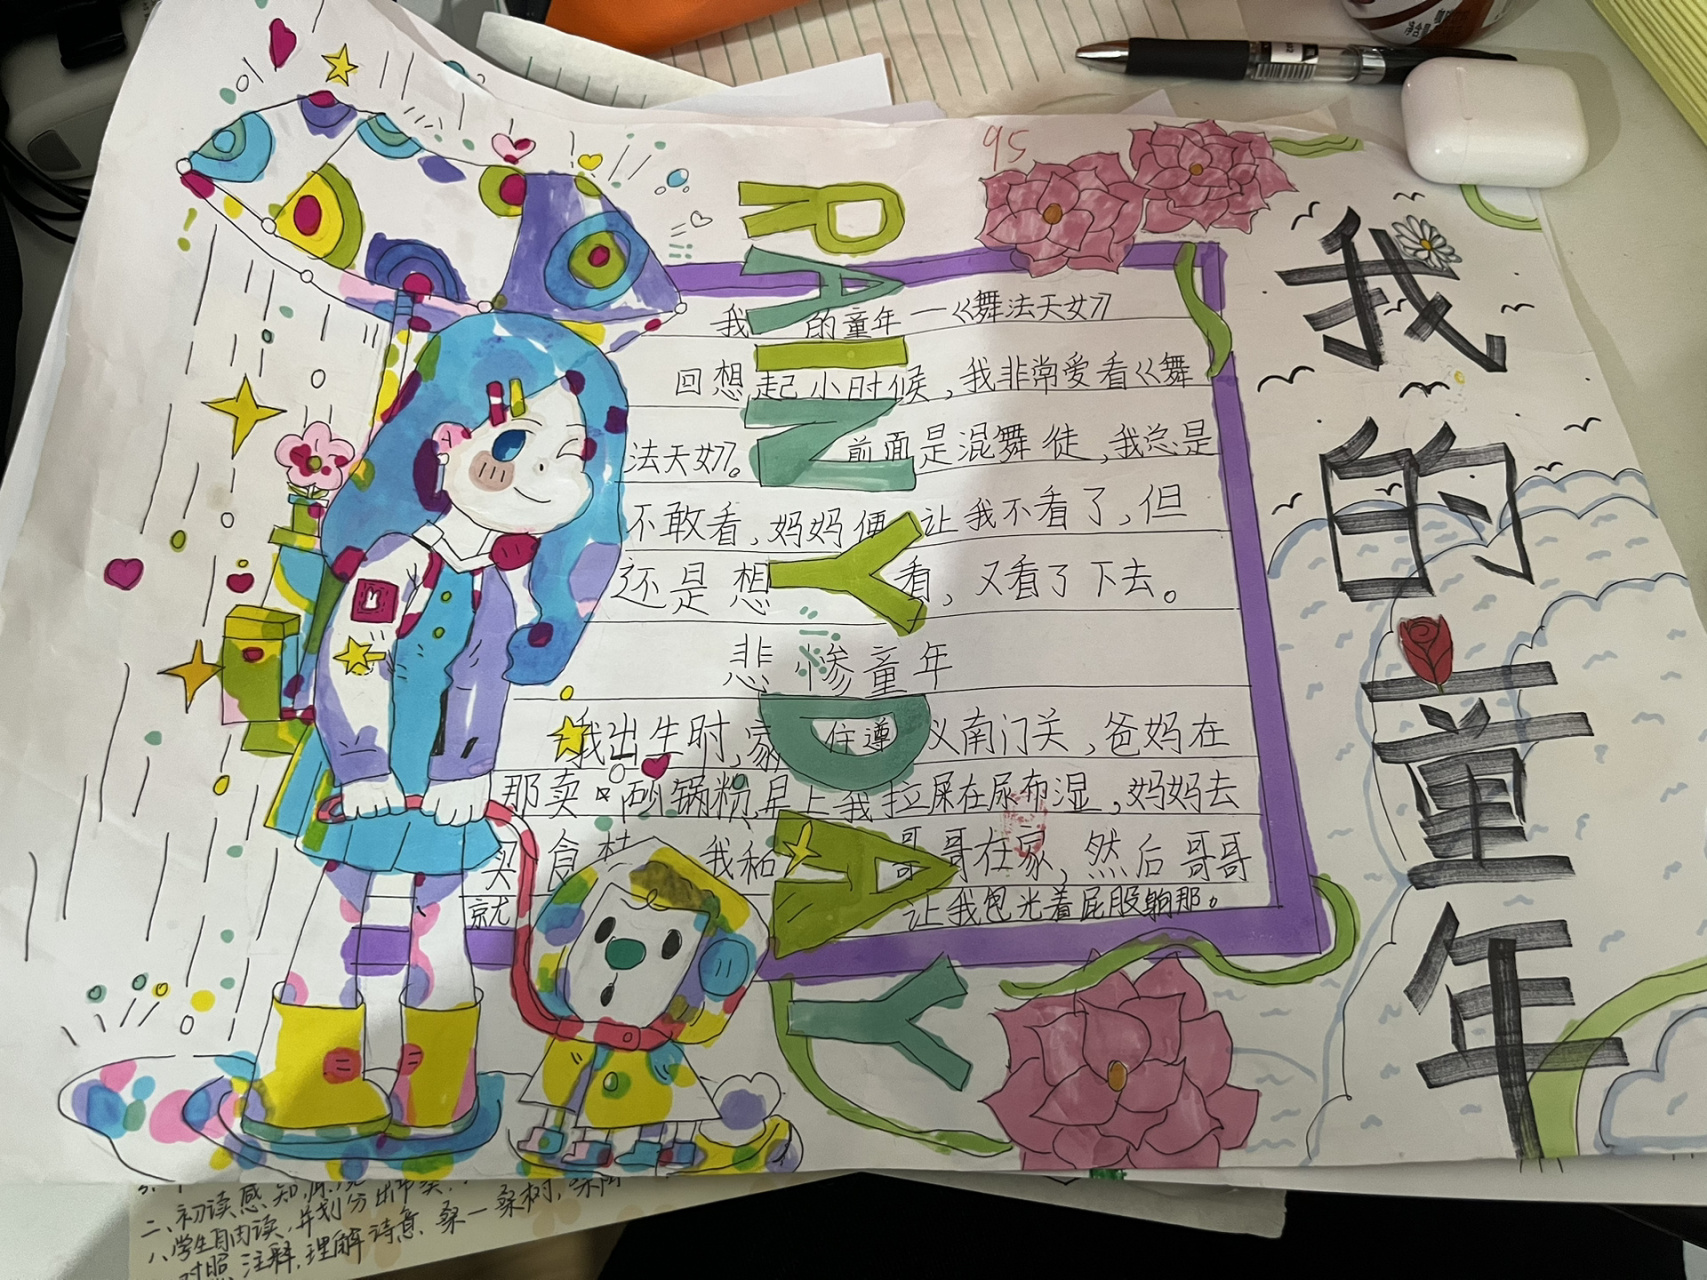 95
我的童年
RAINY DAY
我的童年—《舞法天女》
回想起小时候，我非常爱看《舞
法天女》。前面是混舞徒，我总是
不敢看，妈妈便让我不看了，但
还是想看，又看了下去。
悲惨童年
我出生时，家住遵义南门关，爸妈在
那卖砂锅粉，早上我拉屎在尿布湿，妈妈去
买食材，我和哥哥在家，然后哥哥
就让我包光着屁股躺那。
二、初读感知
八、学生自由读，并划分出节奏
对照注释，理解诗意